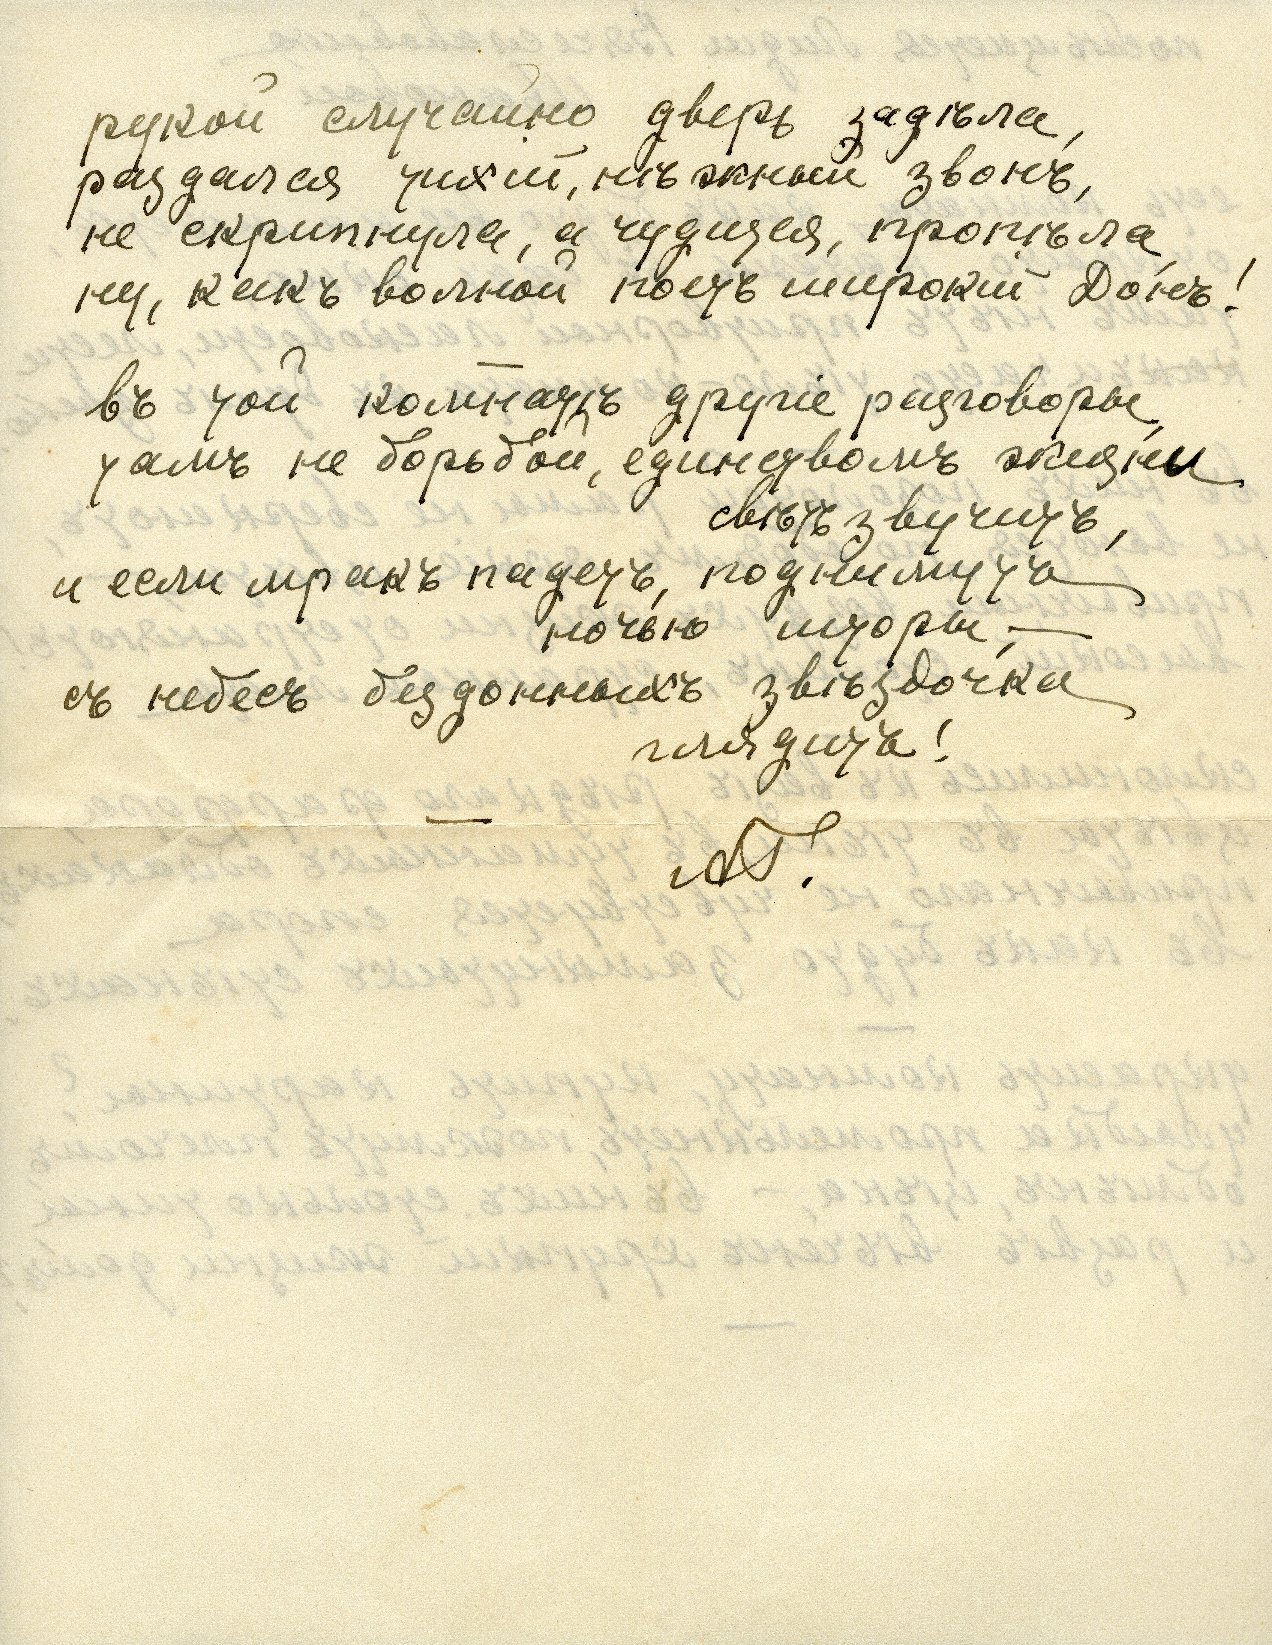 рукой случайно дверь задѣла,
раздался тихій, нѣжный звонъ,
не скрипнула, а чудится, пропѣла
ну, какъ волной поетъ широкій Донъ!
въ той комнатѣ другіе разговоры,
тамъ не борьбой, единствомъ жизни
свѣтъ звучитъ,
и если мракъ падетъ, поднимутъ
ночью шторы, —
съ небесъ бездонныхъ звѣздочка
глядитъ!
АГ.